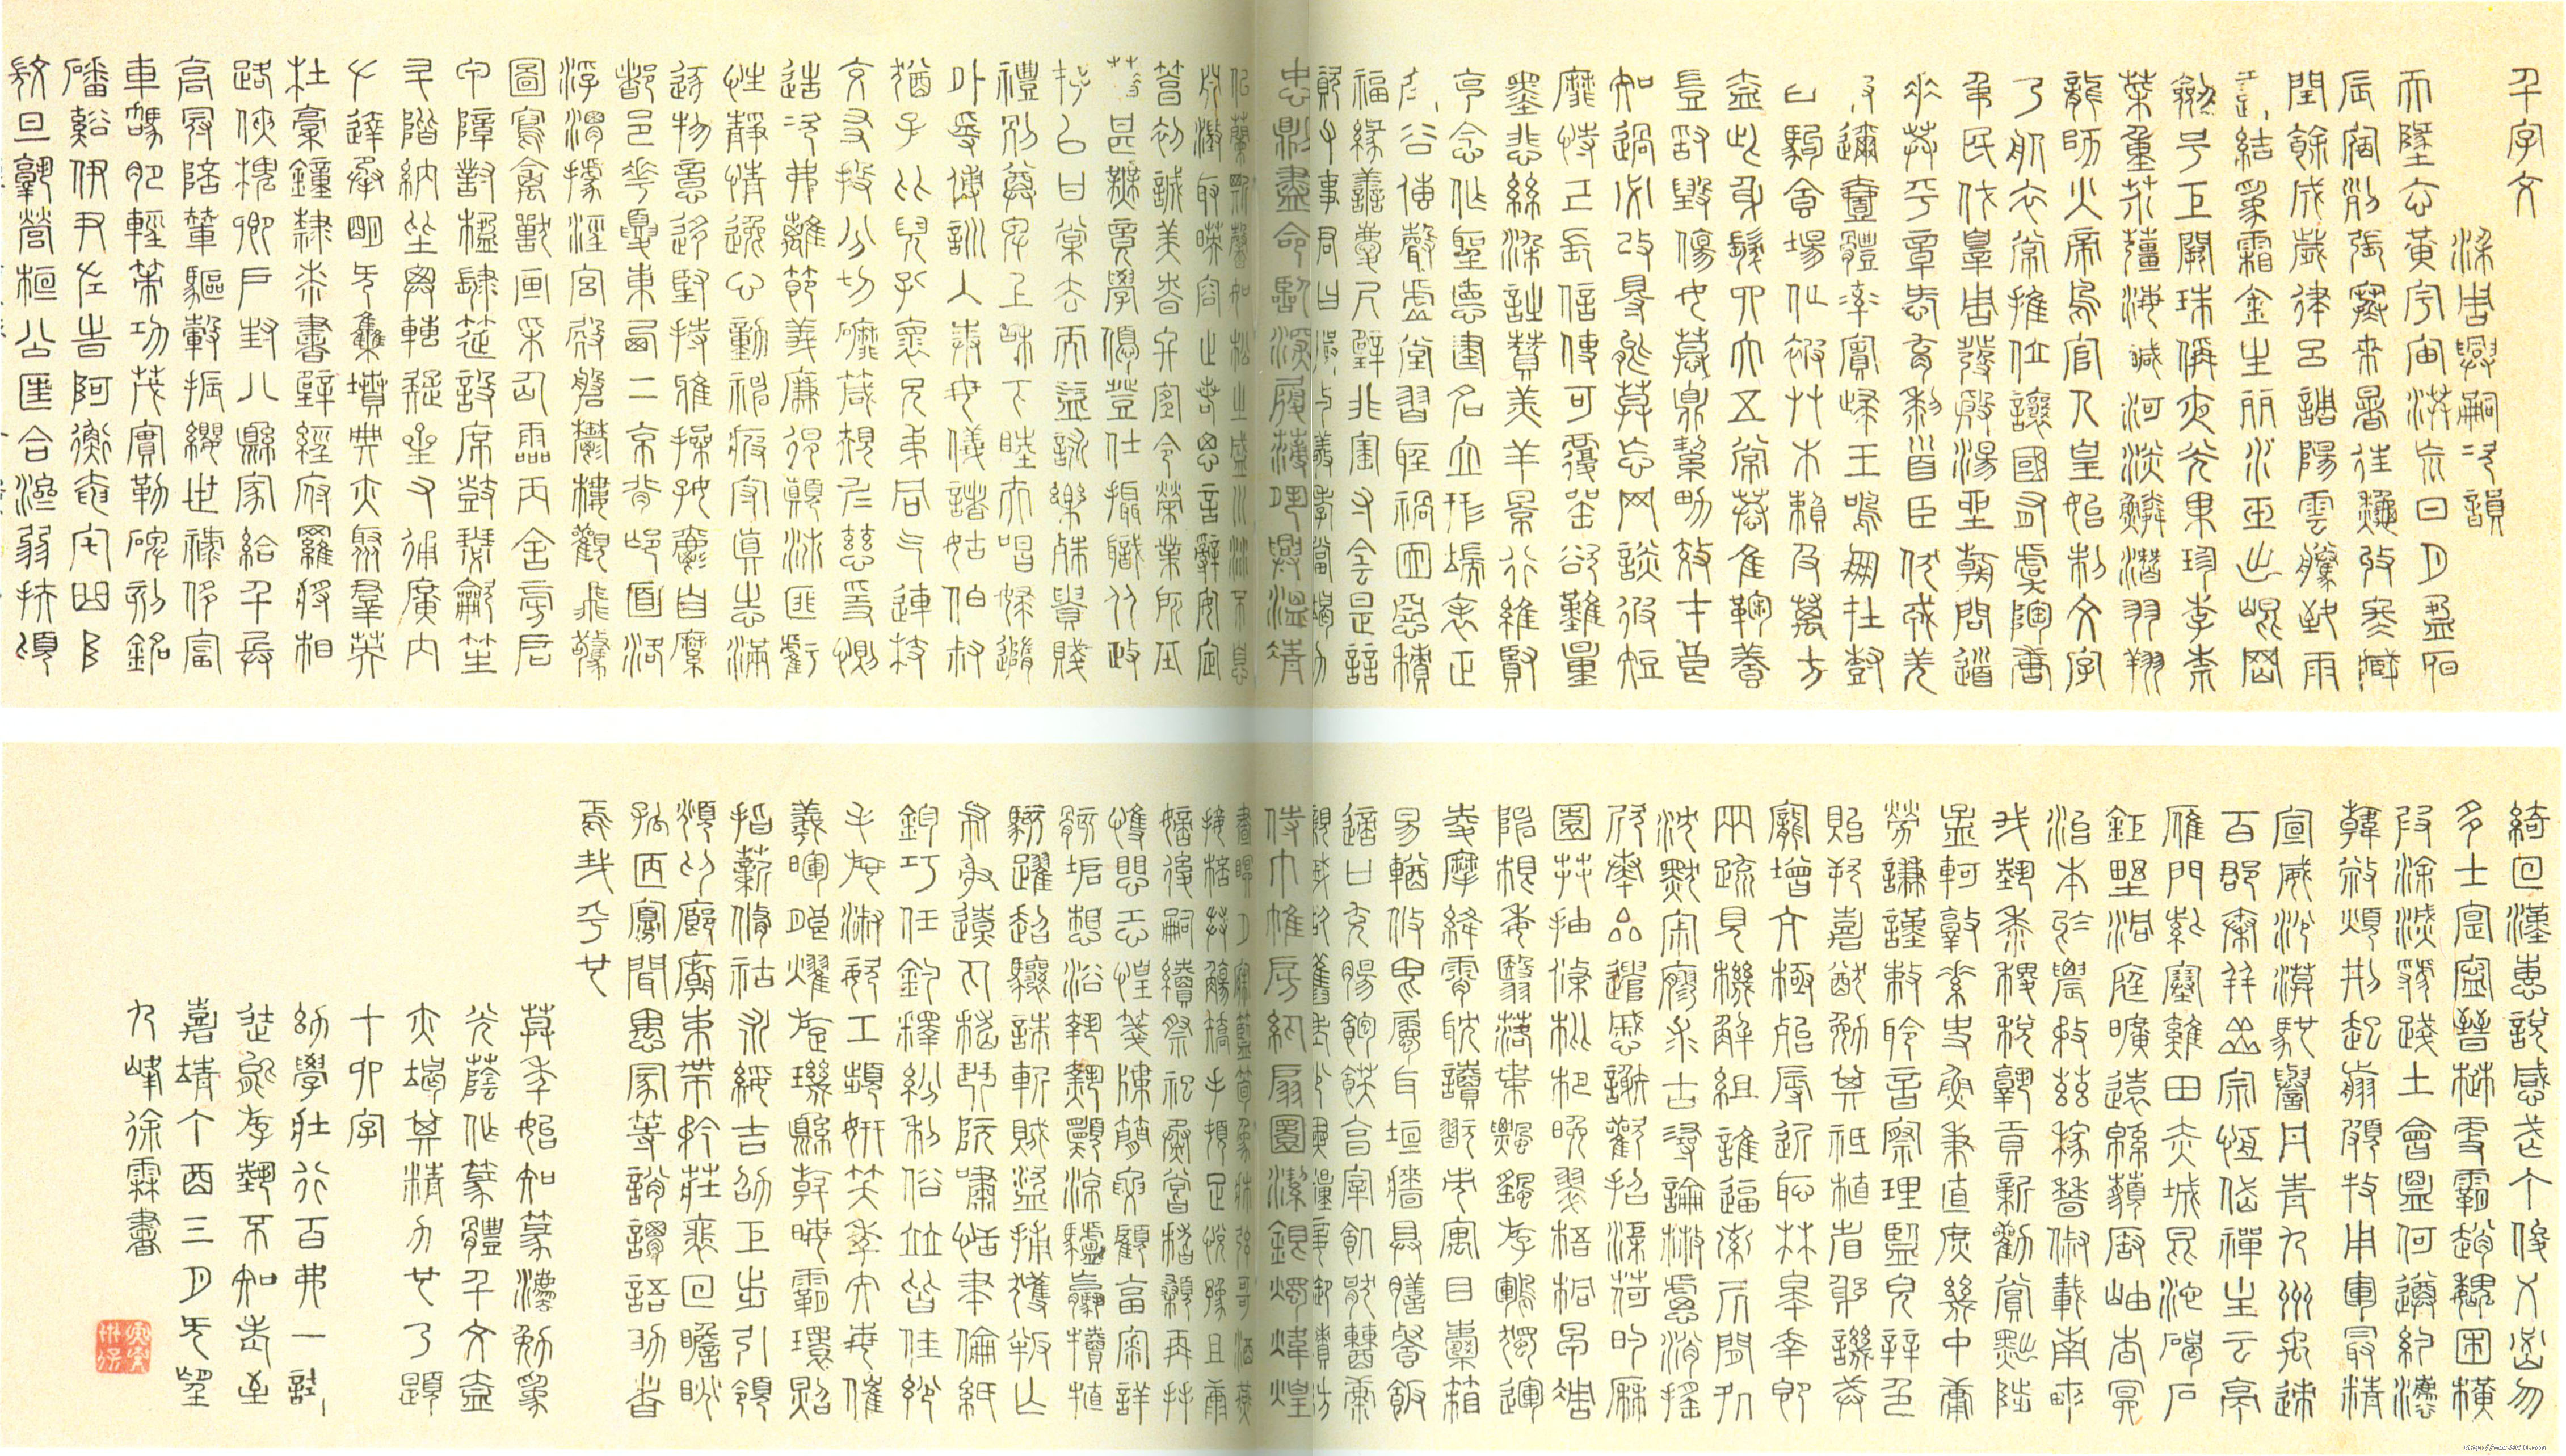 千字文
梁周興嗣次韻
天地玄黃宇宙洪荒日月盈昃
辰宿列張寒來暑往秋收冬藏
閏餘成歲律呂調陽雲騰致雨
露結為霜金生麗水玉出崑岡
劍號巨闕珠稱夜光果珍李柰
菜重芥薑海鹹河淡鱗潛羽翔
龍師火帝鳥官人皇始制文字
乃服衣裳推位讓國有虞陶唐
弔民伐罪周發殷湯坐朝問道
垂拱平章愛育黎首臣伏戎羌
遐邇壹體率賓歸王鳴鳳在樹
白駒食場化被草木賴及萬方
蓋此身髮四大五常恭惟鞠養
豈敢毀傷女慕貞絜男效才良
知過必改得能莫忘罔談彼短
靡恃己長信使可覆器欲難量
墨悲絲染詩讚羔羊景行維賢
克念作聖德建名立形端表正
空谷傳聲虛堂習聽禍因惡積
福緣善慶尺璧非寶寸陰是競
資父事君曰嚴與敬孝當竭力
忠則盡命臨深履薄夙興溫凊
似蘭斯馨如松之盛川流不息
淵澄取映容止若思言辭安定
篤初誠美慎終宜令榮業所基
籍甚無竟學優登仕攝職從政
存以甘棠去而益詠樂殊貴賤
禮別尊卑上和下睦夫唱婦隨
外受傅訓入奉母儀諸姑伯叔
猶子比兒孔懷兄弟同氣連枝
交友投分切磨箴規仁慈隱惻
造次弗離節義廉退顛沛匪虧
性靜情逸心動神疲守真志滿
逐物意移堅持雅操好爵自縻
都邑華夏東西二京背邙面洛
浮渭據涇宮殿盤鬱樓觀飛驚
圖寫禽獸畫采仙靈丙舍傍啟
甲帳對楹肆筵設席鼓瑟吹笙
升階納陛弁轉疑星右通廣內
左達承明既集墳典亦聚群英
杜稿鍾隸漆書壁經府羅將相
路俠槐卿戶封八縣家給千兵
高冠陪輦驅轂振纓世祿侈富
車駕肥輕策功茂實勒碑刻銘
磻谿伊尹佐時阿衡奄宅曲阜
微旦孰營桓公匡合濟弱扶傾
綺回漢惠說感武丁俊乂密勿
多士寔寧晉楚更霸趙魏困橫
假途滅虢踐土會盟何遵約法
韓弊煩刑起翦頗牧用軍最精
宣威沙漠馳譽丹青九州禹跡
百郡秦并嶽宗恆岱禪主云亭
雁門紫塞雞田赤城昆池碣石
鉅野洞庭曠遠綿邈巖岫杳冥
治本於農務茲稼穡俶載南畝
我藝黍稷稅熟貢新勸賞黜陟
孟軻敦素史魚秉直庶幾中庸
勞謙謹敕聆音察理鑒貌辨色
貽厥嘉猷勉其祗植省躬譏誡
寵增抗極殆辱近恥林皋幸即
兩疏見機解組誰逼索居閒處
沈默寂寥求古尋論散慮逍遙
欣奏累遣慼謝歡招渠荷的歷
園莽抽條枇杷晚翠梧桐早凋
陳根委翳落葉飄颻游鵾獨運
凌摩絳霄耽讀翫市寓目囊箱
易輶攸畏屬耳垣牆具膳餐飯
適口充腸飽飫烹宰飢厭糟糠
親戚故舊老少異糧妾御績紡
侍巾帷房紈扇圓潔銀燭煒煌
晝眠夕寐藍筍象床弦歌酒讌
接杯舉觴矯手頓足悅豫且康
嫡後嗣續祭祀烝嘗稽顙再拜
悚懼恐惶箋牒簡要顧答審詳
骸垢想浴執熱願涼驢騾犢特
駭躍超驤誅斬賊盜捕獲叛亡
布射遼丸嵇琴阮嘯恬筆倫紙
鈞巧任釣釋紛利俗並皆佳妙
毛施淑姿工顰妍笑年矢每催
羲暉朗曜璇璣懸斡晦魄環照
指薪脩祜永綏吉劭矩步引領
俯仰廊廟束帶矜莊徘徊瞻眺
孤陋寡聞愚蒙等誚謂語助者
焉哉乎也
莫年始知篆法勉為
光蔭作篆體千文蓋
亦竭其精力廿了題
十四字
幼學壯行百弗一試
徒能存藝不知老至
嘉靖丁酉三月既望
九峰徐霖書